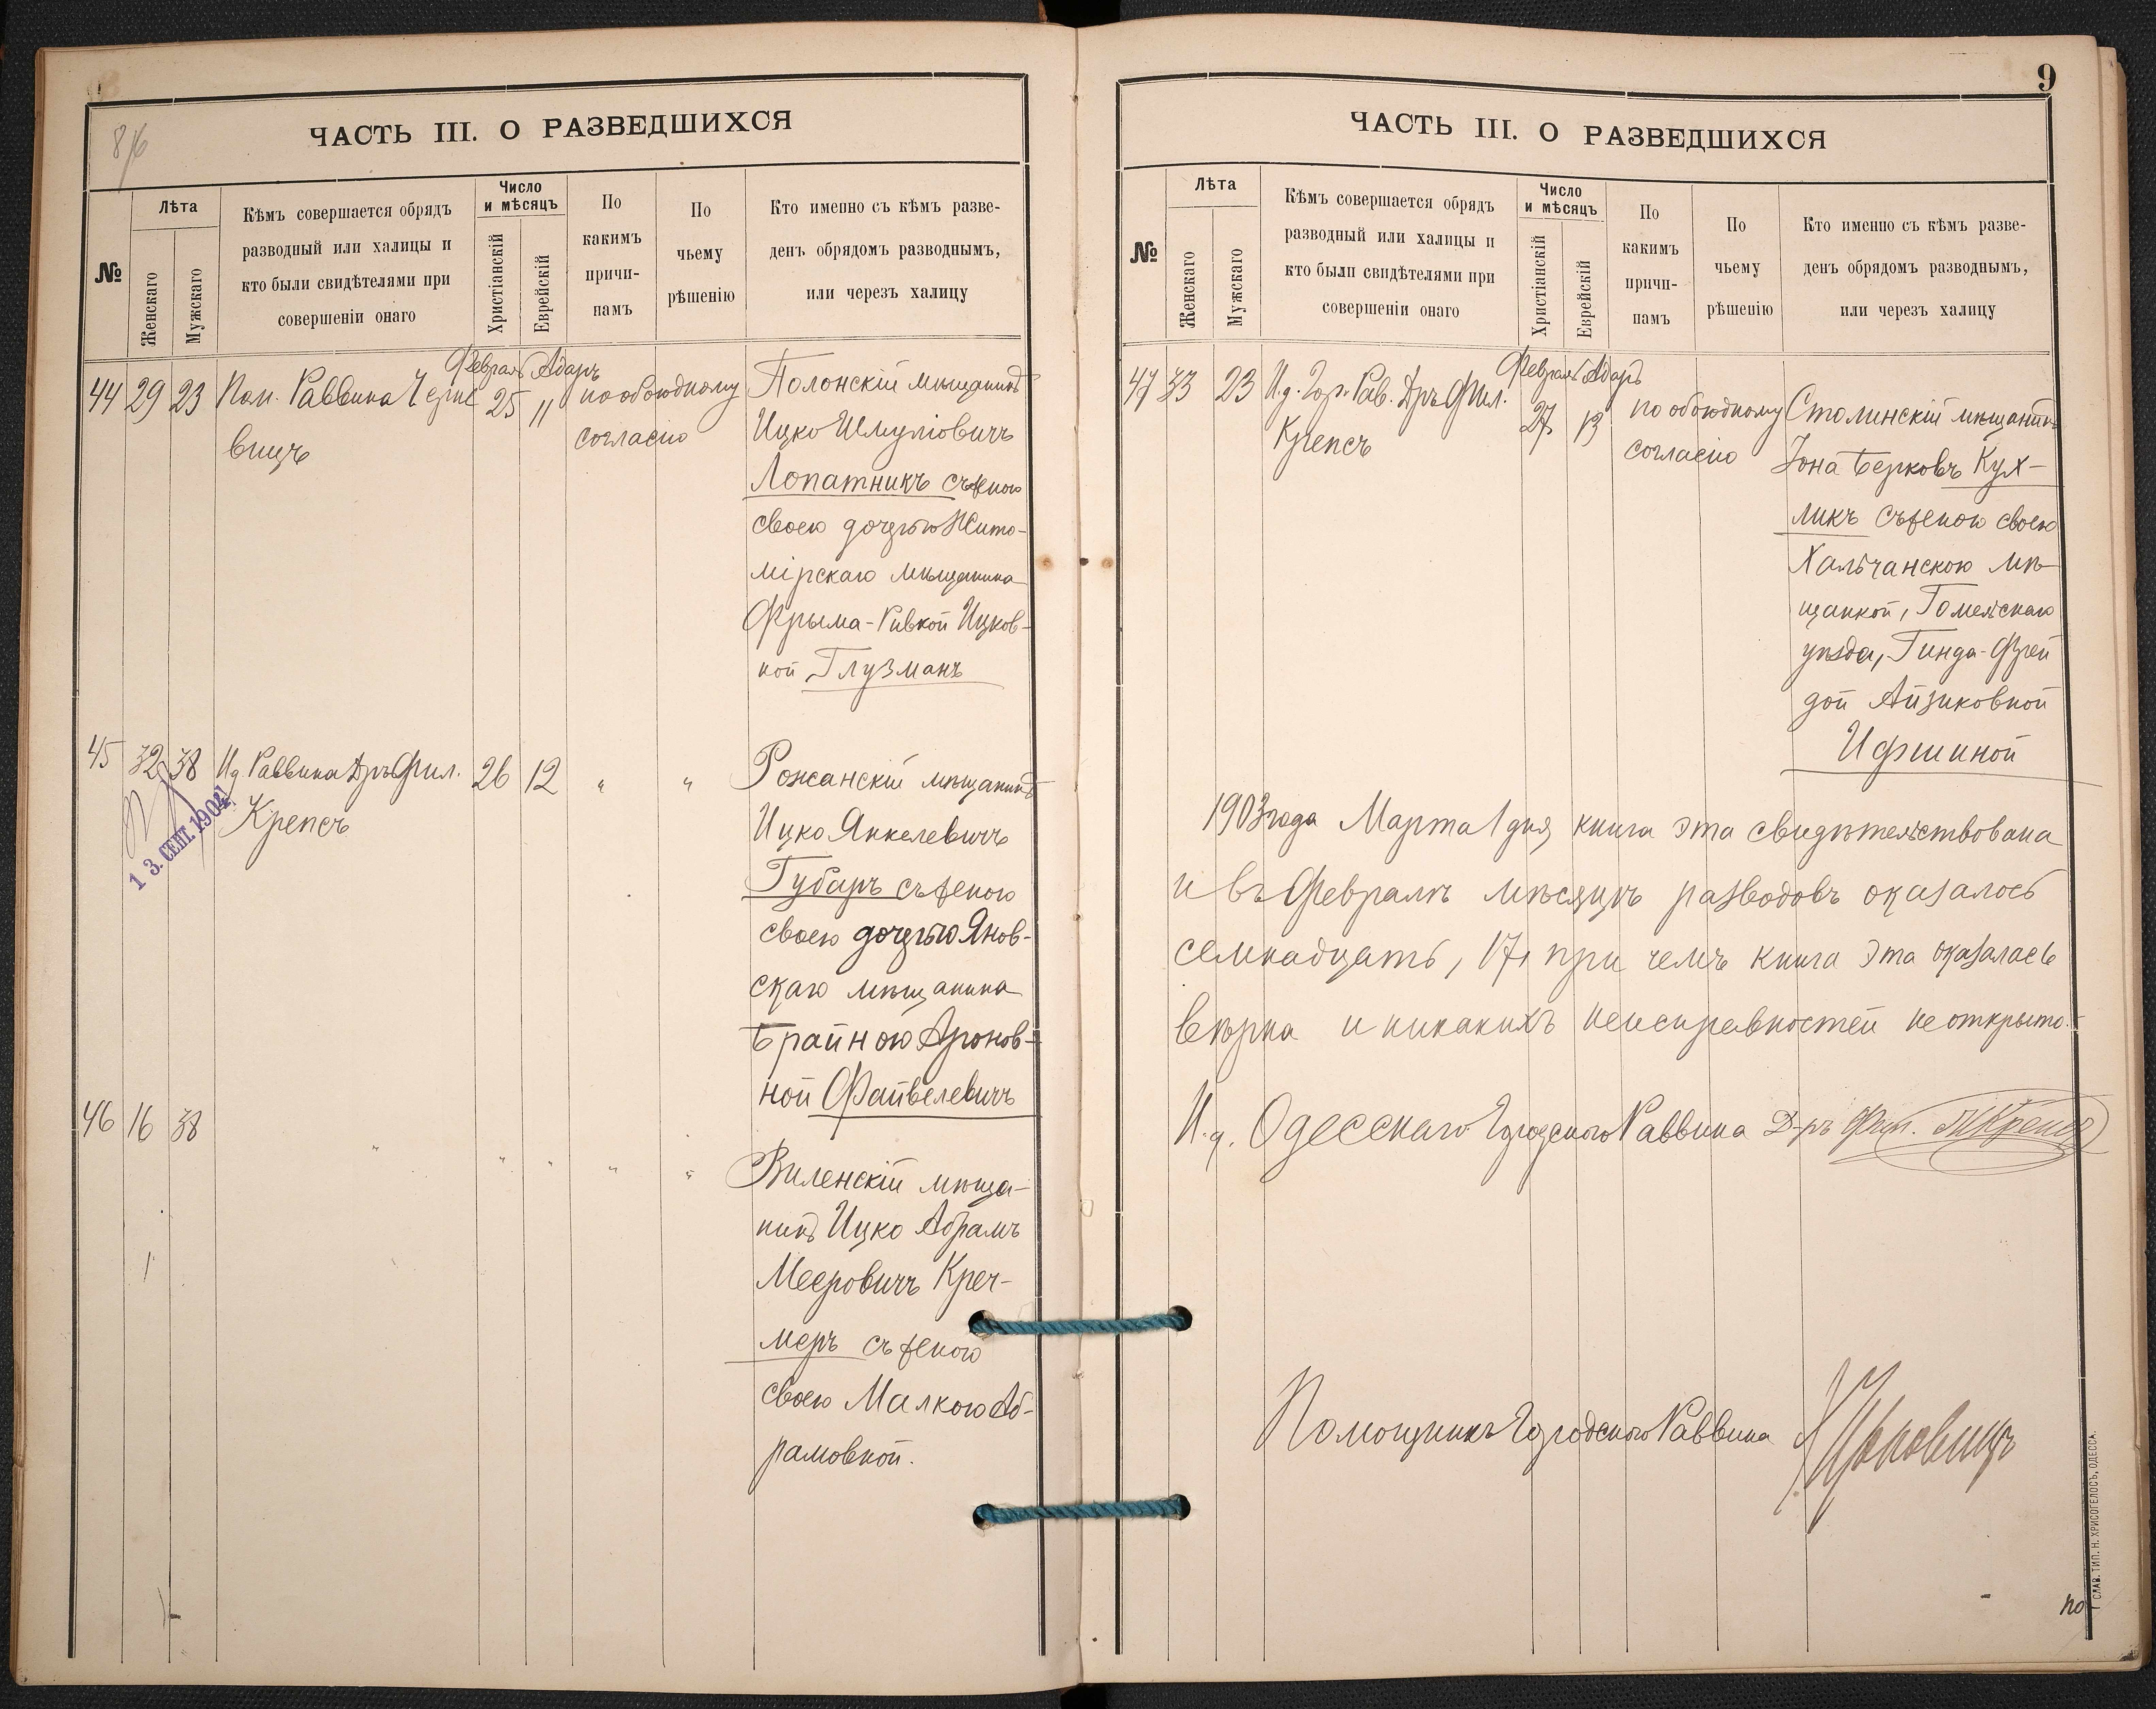 8/16
ЧАСТЬ III. О РАЗВЕДШИХСЯ
№
Лѣта
Женскаго
Мужскаго
Кѣмъ совершается обрядъ
разводный или халицы и
кто были свидѣтелями при
совершеніи онаго
Число
и мѣсяцъ
Христіанскій
Еврейскій
По
какимъ
причи-
намъ
По
чьему
рѣшенію
Кто именно съ кѣмъ разве-
денъ обрядомъ разводнымъ,
или черезъ халицу
Февраль Адаръ
44 29 23 Пом. Раввина 25 11 по обоюдному Полонскій мѣщанинъ
вицъ согласію Ицко Шмуліовичъ
Лопатникъ съ женою
своею дочерью Жито-
мірскаго мѣщанина
Фрыма-Ривкой Ицков-
ной Глузманъ
45 32 38 И д Раввина Дръ Фил. 26 12 " " Рожанскій мѣщанинъ
Крепсъ Ицко Янкелевичъ
13. СЕНТ. 1904
Губаръ съ женою
своею дочерью Янов-
скаго мѣщанина
Брайною Аронов-
ной Файвелевичъ
46 16 38 " " " " " Виленскій мѣща-
нинъ Ицко Абрамъ
Мееровичъ Креч-
меръ съ женою
своею Малкою Аб-
рамовной.
9
ЧАСТЬ III. О РАЗВЕДШИХСЯ
№
Лѣта
Женскаго
Мужскаго
Кѣмъ совершается обрядъ
разводный или халицы и
кто были свидѣтелями при
совершеніи онаго
Число
и мѣсяцъ
Христіанскій
Еврейскій
По
какимъ
причи-
намъ
По
чьему
рѣшенію
Кто именно съ кѣмъ разве-
денъ обрядомъ разводнымъ,
или черезъ халицу
Февраль Адаръ
47 33 23 И.д. Гор. Рав. Дръ Фил. 27 13 по обоюдному Столинскій мѣщанинъ
Крепсъ согласію Іона Берковъ Кух-
ликъ съ женою своею
Хальчанскою мѣ-
щанкой, Гомельскаго
уѣзда, Гинда-Фрей
дой Айзиковной
Ифшиной
1903 года Марта 1 дня книга эта свидѣтельствована
и въ Февралѣ мѣсяцѣ разводовъ оказалось
семнадцать, 17, при чемъ книга эта оказалась
вѣрна и никакихъ неисправностей не открыто.
И.д. Одесскаго Городского Раввина Д-ръ Фил. Крепсъ
Помощникъ Городского Раввина
СЛАВ. ТИП. Н. ХРИСОГЕЛОСЪ, ОДЕССА.
по